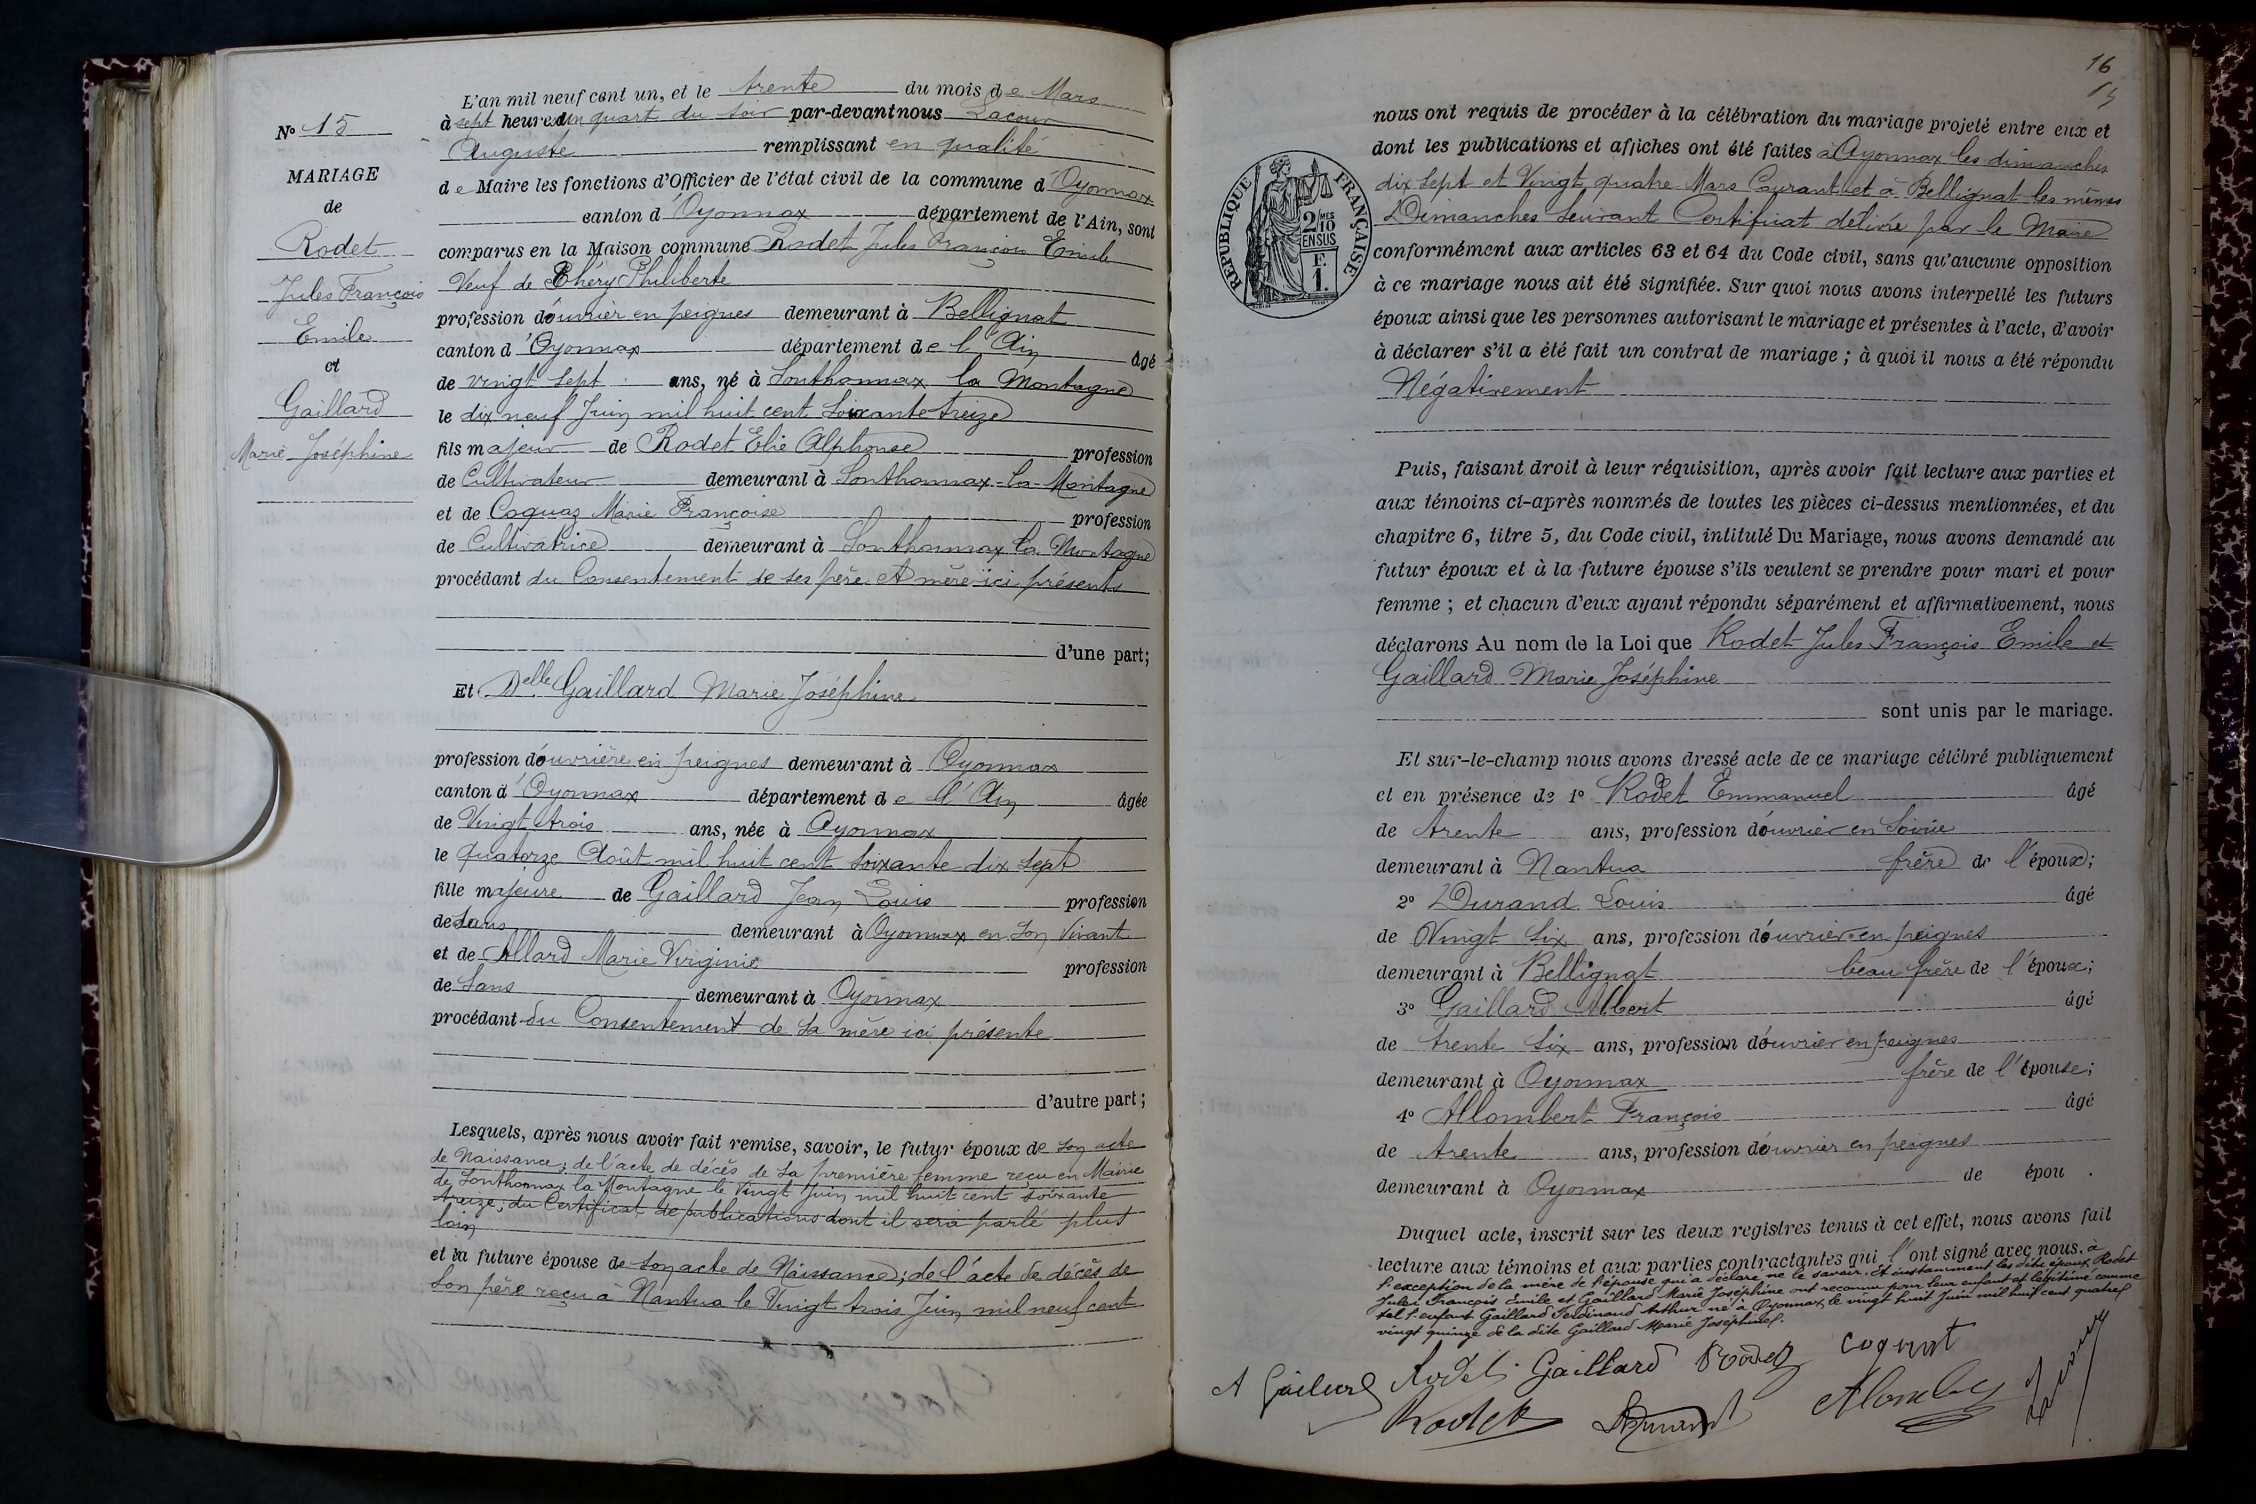 N° 15
MARIAGE
de
Rodet
Jules François
Emile
et
Gaillard
Marie Joséphine
L'an mil neuf cent un, et le trente du mois de Mars
à sept heures un quart du soir par-devant nous Lacour
Auguste remplissant en qualité
de Maire les fonctions d'Officier de l'état civil de la commune d'Oyonnax
canton d'Oyonnax département de l'Ain, sont
comparus en la Maison commune Rodet Jules François Emile
Veuf de Théry Philiberte
profession d'ouvrier en peignes demeurant à Bellignat
canton d'Oyonnax département de l'Ain âgé
de vingt sept ans, né à Sonthonnax la Montagne
le dix neuf Juin mil huit cent soixante treize
fils majeur de Rodet Elie Alphonse profession
de Cultivateur demeurant à Sonthonnax-la-Montagne
et de Coquaz Marie Françoise profession
de Cultivatrice demeurant à Sonthonnax la Montagne
procédant du Consentement de ses père et mère ici présents
d'une part;
Et Delle Gaillard Marie Joséphine
profession d'ouvrière en peignes demeurant à Oyonnax
canton d'Oyonnax département de l'Ain âgée
de Vingt trois ans, née à Oyonnax
le quatorze Août mil huit cent soixante dix sept
fille majeure de Gaillard Jean Louis profession
de sans demeurant à Oyonnax en son Vivant
et de Allard Marie Virginie profession
de Sans demeurant à Oyonnax
procédant du Consentement de sa mère ici présente
d'autre part;
Lesquels, après nous avoir fait remise, savoir, le futur époux de son acte
de Naissance; de l'acte de décès de sa première femme reçu en Mairie
de Sonthonnax la Montagne le Vingt Juin mil huit cent soixante
treize; du Certificat de publications dont il sera parlé plus
loin
et la future épouse de son acte de Naissance; de l'acte de décès de
son père reçu à Nantua le Vingt trois Juin mil neuf cent
16
15
RÉPUBLIQUE FRANÇAISE
2/10 MES
EN SUS
F.
1.
nous ont requis de procéder à la célébration du mariage projeté entre eux et
dont les publications et affiches ont été faites à Oyonnax les dimanches
dix sept et Vingt quatre Mars Courant et à Bellignat les mêmes
Dimanches suivant Certificat délivré par le Maire
conformément aux articles 63 et 64 du Code civil, sans qu'aucune opposition
à ce mariage nous ait été signifiée. Sur quoi nous avons interpellé les futurs
époux ainsi que les personnes autorisant le mariage et présentes à l'acte, d'avoir
à déclarer s'il a été fait un contrat de mariage; à quoi il nous a été répondu
Négativement
Puis, faisant droit à leur réquisition, après avoir fait lecture aux parties et
aux témoins ci-après nommés de toutes les pièces ci-dessus mentionnées, et du
chapitre 6, titre 5, du Code civil, intitulé Du Mariage, nous avons demandé au
futur époux et à la future épouse s'ils veulent se prendre pour mari et pour
femme; et chacun d'eux ayant répondu séparément et affirmativement, nous
déclarons Au nom de la Loi que Rodet Jules François Emile et
Gaillard Marie Joséphine
sont unis par le mariage.
Et sur-le-champ nous avons dressé acte de ce mariage célébré publiquement
et en présence de 1° Rodet Emmanuel âgé
de trente ans, profession d'ouvrier en soierie
demeurant à Nantua frère de l'époux;
2° Durand Louis âgé
de Vingt six ans, profession d'ouvrier en peignes
demeurant à Bellignat beau frère de l'époux;
3° Gaillard Albert âgé
de trente six ans, profession d'ouvrier en peignes
demeurant à Oyonnax frère de l'épouse;
4° Allombert François âgé
de trente ans, profession d'ouvrier en peignes
demeurant à Oyonnax de épou .
Duquel acte, inscrit sur les deux registres tenus à cet effet, nous avons fait
lecture aux témoins et aux parties contractantes qui l'ont signé avec nous. à
l'exception de la mère de l'épouse qui a déclaré ne le savoir. Et instamment les dits époux Rodet
Jules François Emile et Gaillard Marie Joséphine ont reconnu pour leur enfant et légitimé comme
tel l'enfant Gaillard Ferdinand Arthur né à Oyonnax le vingt huit Juin mil huit cent quatre
vingt quinze de la dite Gaillard Marie Joséphine.
A Gaillard Rodet Gaillard Rodet coquat
Rodet Durand Alombert